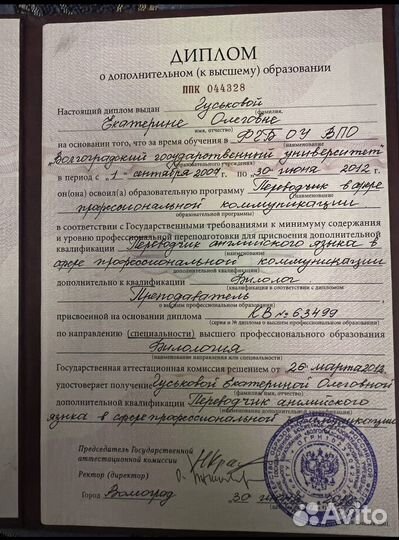 ДИПЛОМ
о дополнительном (к высшему) образовании
ППК 044328
Настоящий диплом выдан Гуськовой
(фамилия,
Екатерине Олеговне
имя, отчество)
на основании того, что за время обучения в ФГБ ОУ ВПО
(наименование
"Волгоградский государственный университет"
образовательного учреждения)
в период с " 1 " сентября 2007 г. по 30 июня 2012 г.
он(она) освоил(а) образовательную программу Переводчик в сфере
(наименование
профессиональной коммуникации
образовательной программы)
в соответствии с Государственными требованиями к минимуму содержания
и уровню профессиональной переподготовки для присвоения дополнительной
квалификации Переводчик английского языка в
(наименование
сфере профессиональной коммуникации
дополнительной квалификации)
дополнительно к квалификации Филолог
(квалификация в соответствии с дипломом
Преподаватель
о высшем профессиональном образовании)
присвоенной на основании диплома КВ № 63499
(серия и № диплома о высшем профессиональном образовании)
по направлению (специальности) высшего профессионального образования
Филология
(наименование направления или специальности)
Государственная аттестационная комиссия решением от 26 марта 2012 г.
удостоверяет получение Гуськовой Екатериной Олеговной
(фамилия, имя, отчество)
дополнительной квалификации Переводчик английского
языка в сфере профессиональной коммуникации
Председатель Государственной
аттестационной комиссии
Ректор (директор)
Город Волгоград 30 июня
Avito